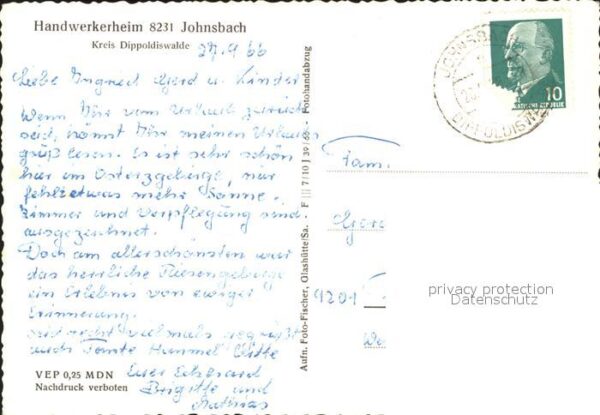 Handwerkerheim 8231 Johnsbach
Kreis Dippoldiswalde
27.9.66
Liebe Ingried Gerd u. Kinder
Wenn Ihr vom Urlaub zurück
seid, könnt Ihr meinen Urlaubs
gruß lesen. Es ist sehr schön
hier im Osterzgebirge, nur
fehlt etwas mehr Sonne.
Zimmer und Verpflegung sind
ausgezeichnet.
Doch am allerschönsten war
das herrliche Riesengebirge
ein Erlebnis von ewiger
Erinnerung.
recht vielmals gegrüßt
auch Tante Hummel
Euer Eckehard
Brigitte und
Mathias
VEP 0,25 MDN
Nachdruck verboten
Aufn. Foto-Fischer, Glashütte/Sa. F 7/10 J 39/66 - Fotohandabzug
10
Fam.
Gerd
9201
privacy protection
Datenschutz